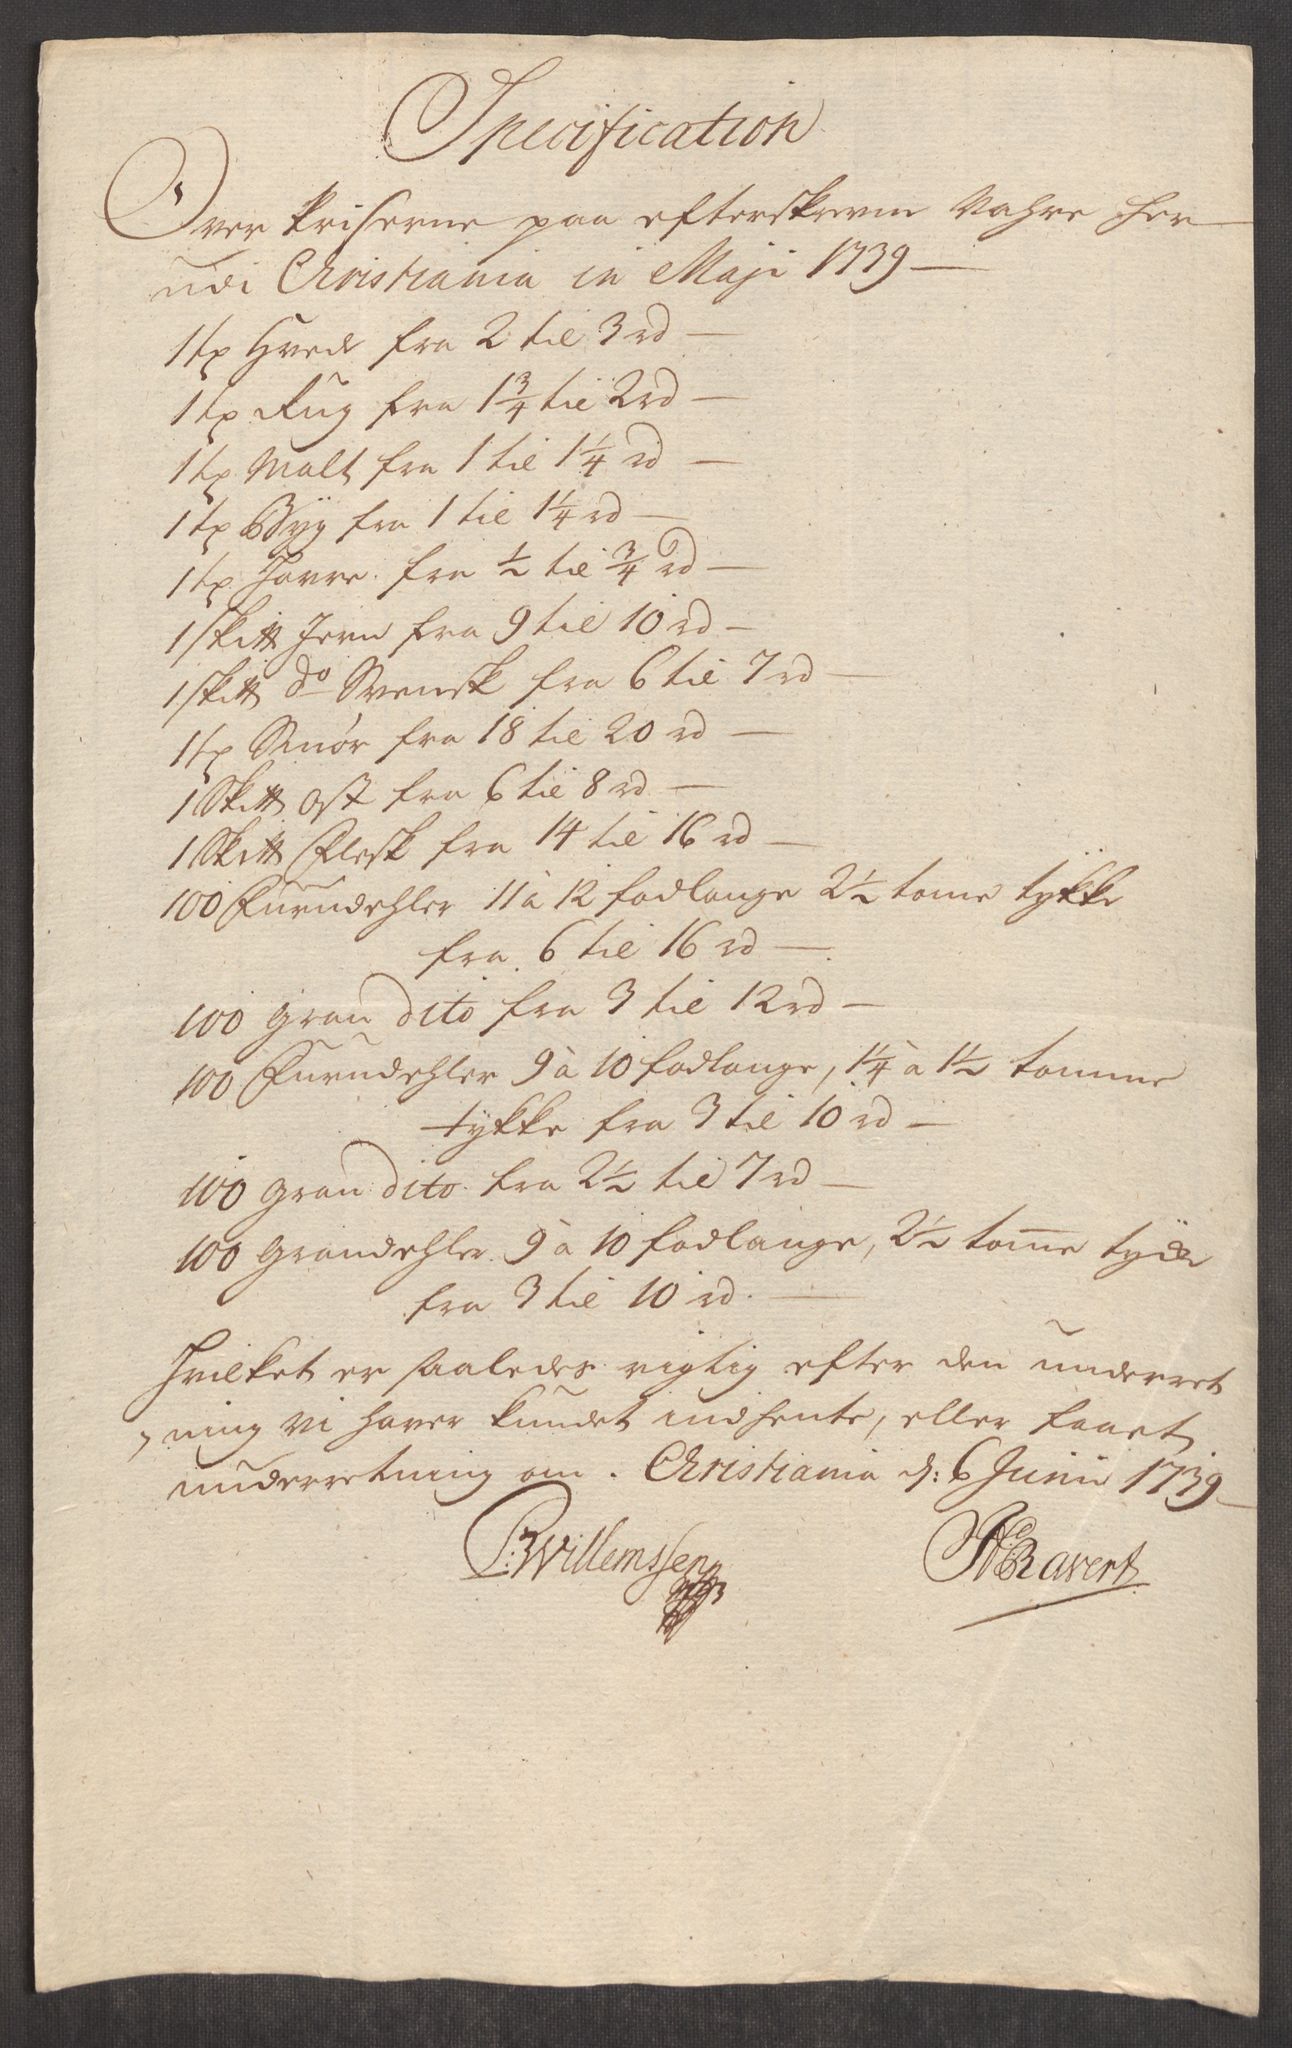 Specification
Over Priserne paa efterskrevne Vahre her
udi Christiania in Maji 1739
1 tø Hvede fra 2 til 3 rd
1 tø Rug fra 1¾ til 2 rd
1 tø Malt fra 1 til 1¼ rd
1 tø Byg fra 1 til 1¼ rd
1 tø Havre fra ½ til ¾ rd
1 Skit℔ Jern fra 9 til 10 rd
1 Skit℔ do Svensk fra 6 til 7 rd
1 tø Smör fra 18 til 20 rd
1 Skit℔ Ost fra 6 til 8 rd
1 Skit℔ Flesk fra 14 til 16 rd
100 Furudehler 11 à 12 fodlange 2½ tome tykke
fra 6 til 16 rd
100 gran dito fra 3 til 12 rd
100 Furudehler 9 à 10 fodlange, 1¼ à 1½ tomme
tykke fra 3 til 10 rd
100 gran dito fra 2½ til 7 rd
100 grandehler 9 à 10 fodlange, 2½ tom̅e
fra 3 til 10 rd.
Hvilket er saaledes rigtig efter den underret
ning vi haver kundet indhente, eller faaet
underretning om. Christiania d: 6 Junii 1739
Willemssen
Ravert